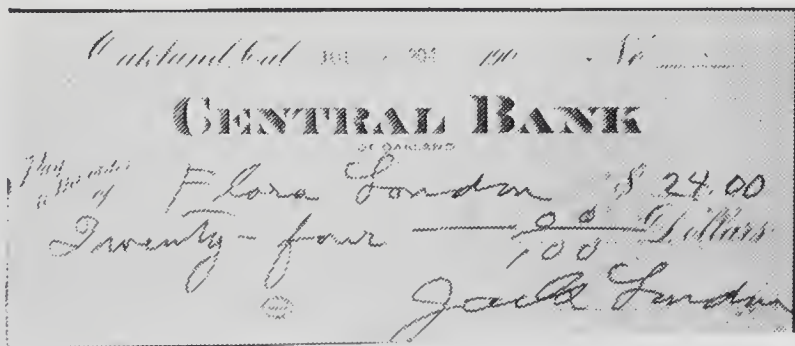 Oakland, Cal. 190 No.
CENTRAL BANK
OF OAKLAND
Pay to the order of Flora London $ 24.00
Twenty-four 00/100 Dollars
Jack London